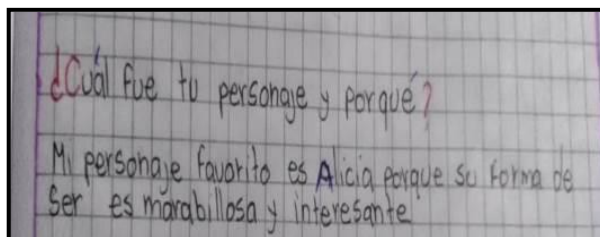 ¿Cuál fue tu personaje y porqué?
Mi personaje favorito es Alicia porque su forma de
Ser es marabillosa y interesante